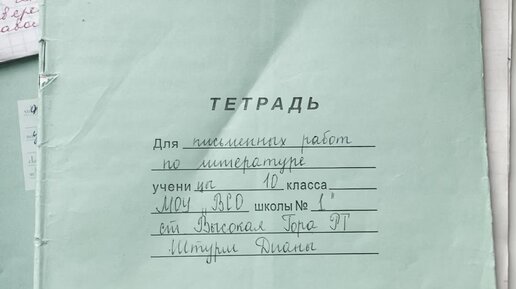 ТЕТРАДЬ
Для письменных работ
по литературе
учени цы 10 класса
МОУ „ВСО школы № 1"
ст Высокая Гора РТ
Штурм Дианы